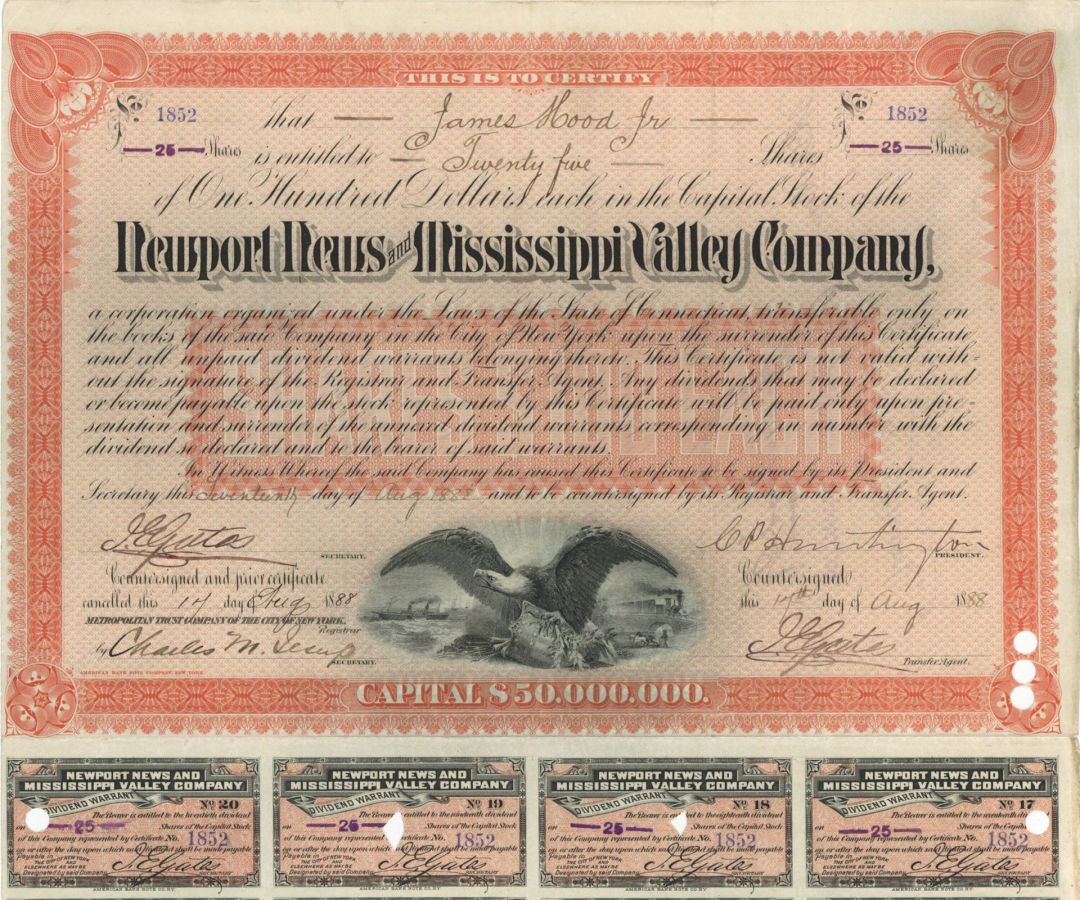 THIS IS TO CERTIFY
No 1852
No 1852
That — James Hood Jr —
—25— Shares
—25— Shares
is entitled to — Twenty five — Shares
of One Hundred Dollars each in the Capital Stock of the
Newport News and Mississippi Valley Company,
a corporation organized under the Laws of the State of Connecticut transferable only on
the books of the said Company in the City of New York upon the surrender of this Certificate
and all unpaid dividend warrants belonging thereto. This Certificate is not valid with-
out the signature of the Registrar and Transfer Agent. Any dividends that may be declared
or become payable upon the stock represented by this Certificate will be paid only upon pre-
sentation and surrender of the annexed dividend warrants corresponding in number with the
dividend so declared and to the bearer of said warrants.
SHARES $100 EACH
In Witness Whereof the said Company has caused this Certificate to be signed by its President and
Secretary this Seventeenth day of Aug 1888 and to be countersigned by its Registrar and Transfer Agent.
I.E. Gates
SECRETARY.
C P Huntington
PRESIDENT.
Countersigned and prior certificate
cancelled this 17 day of Aug 1888
METROPOLITAN TRUST COMPANY OF THE CITY OF NEW YORK,
Registrar
by Charles M. Jesup
SECRETARY.
Countersigned
this 17th day of Aug 1888
I.E. Gates
Transfer Agent.
AMERICAN BANK NOTE COMPANY, NEW YORK.
CAPITAL $50.000.000.
NEWPORT NEWS AND
MISSISSIPPI VALLEY COMPANY
DIVIDEND WARRANT
No 20
The Bearer is entitled to the twentieth dividend
on —25— Shares of the Capital Stock
of this Company represented by Certificate No. 1852
on or after the day upon which said dividend shall be made payable
Payable in NEW YORK
AND
ELSEWHERE AS MAY BE
Designated by said Company
I.E. Gates
SECRETARY
AMERICAN BANK NOTE CO. N.Y.
NEWPORT NEWS AND
MISSISSIPPI VALLEY COMPANY
DIVIDEND WARRANT
No 19
The Bearer is entitled to the nineteenth dividend
on —25— Shares of the Capital Stock
of this Company represented by Certificate No. 1852
on or after the day upon which said dividend shall be made payable
Payable in NEW YORK
AND
ELSEWHERE AS MAY BE
Designated by said Company
I.E. Gates
SECRETARY
AMERICAN BANK NOTE CO. N.Y.
NEWPORT NEWS AND
MISSISSIPPI VALLEY COMPANY
DIVIDEND WARRANT
No 18
The Bearer is entitled to the eighteenth dividend
on —25— Shares of the Capital Stock
of this Company represented by Certificate No. 1852
on or after the day upon which said dividend shall be made payable
Payable in NEW YORK
AND
ELSEWHERE AS MAY BE
Designated by said Company
I.E. Gates
SECRETARY
AMERICAN BANK NOTE CO. N.Y.
NEWPORT NEWS AND
MISSISSIPPI VALLEY COMPANY
DIVIDEND WARRANT
No 17
The Bearer is entitled to the seventeenth dividend
on —25— Shares of the Capital Stock
of this Company represented by Certificate No. 1852
on or after the day upon which said dividend shall be made payable
Payable in NEW YORK
AND
ELSEWHERE AS MAY BE
Designated by said Company
I.E. Gates
SECRETARY
AMERICAN BANK NOTE CO. N.Y.